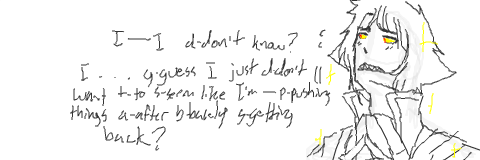 I—I d-don't know?
I... g-guess I just d-don't
want t-to s-seem like I'm—p-pushing
things a-after b-barely s-getting
back?